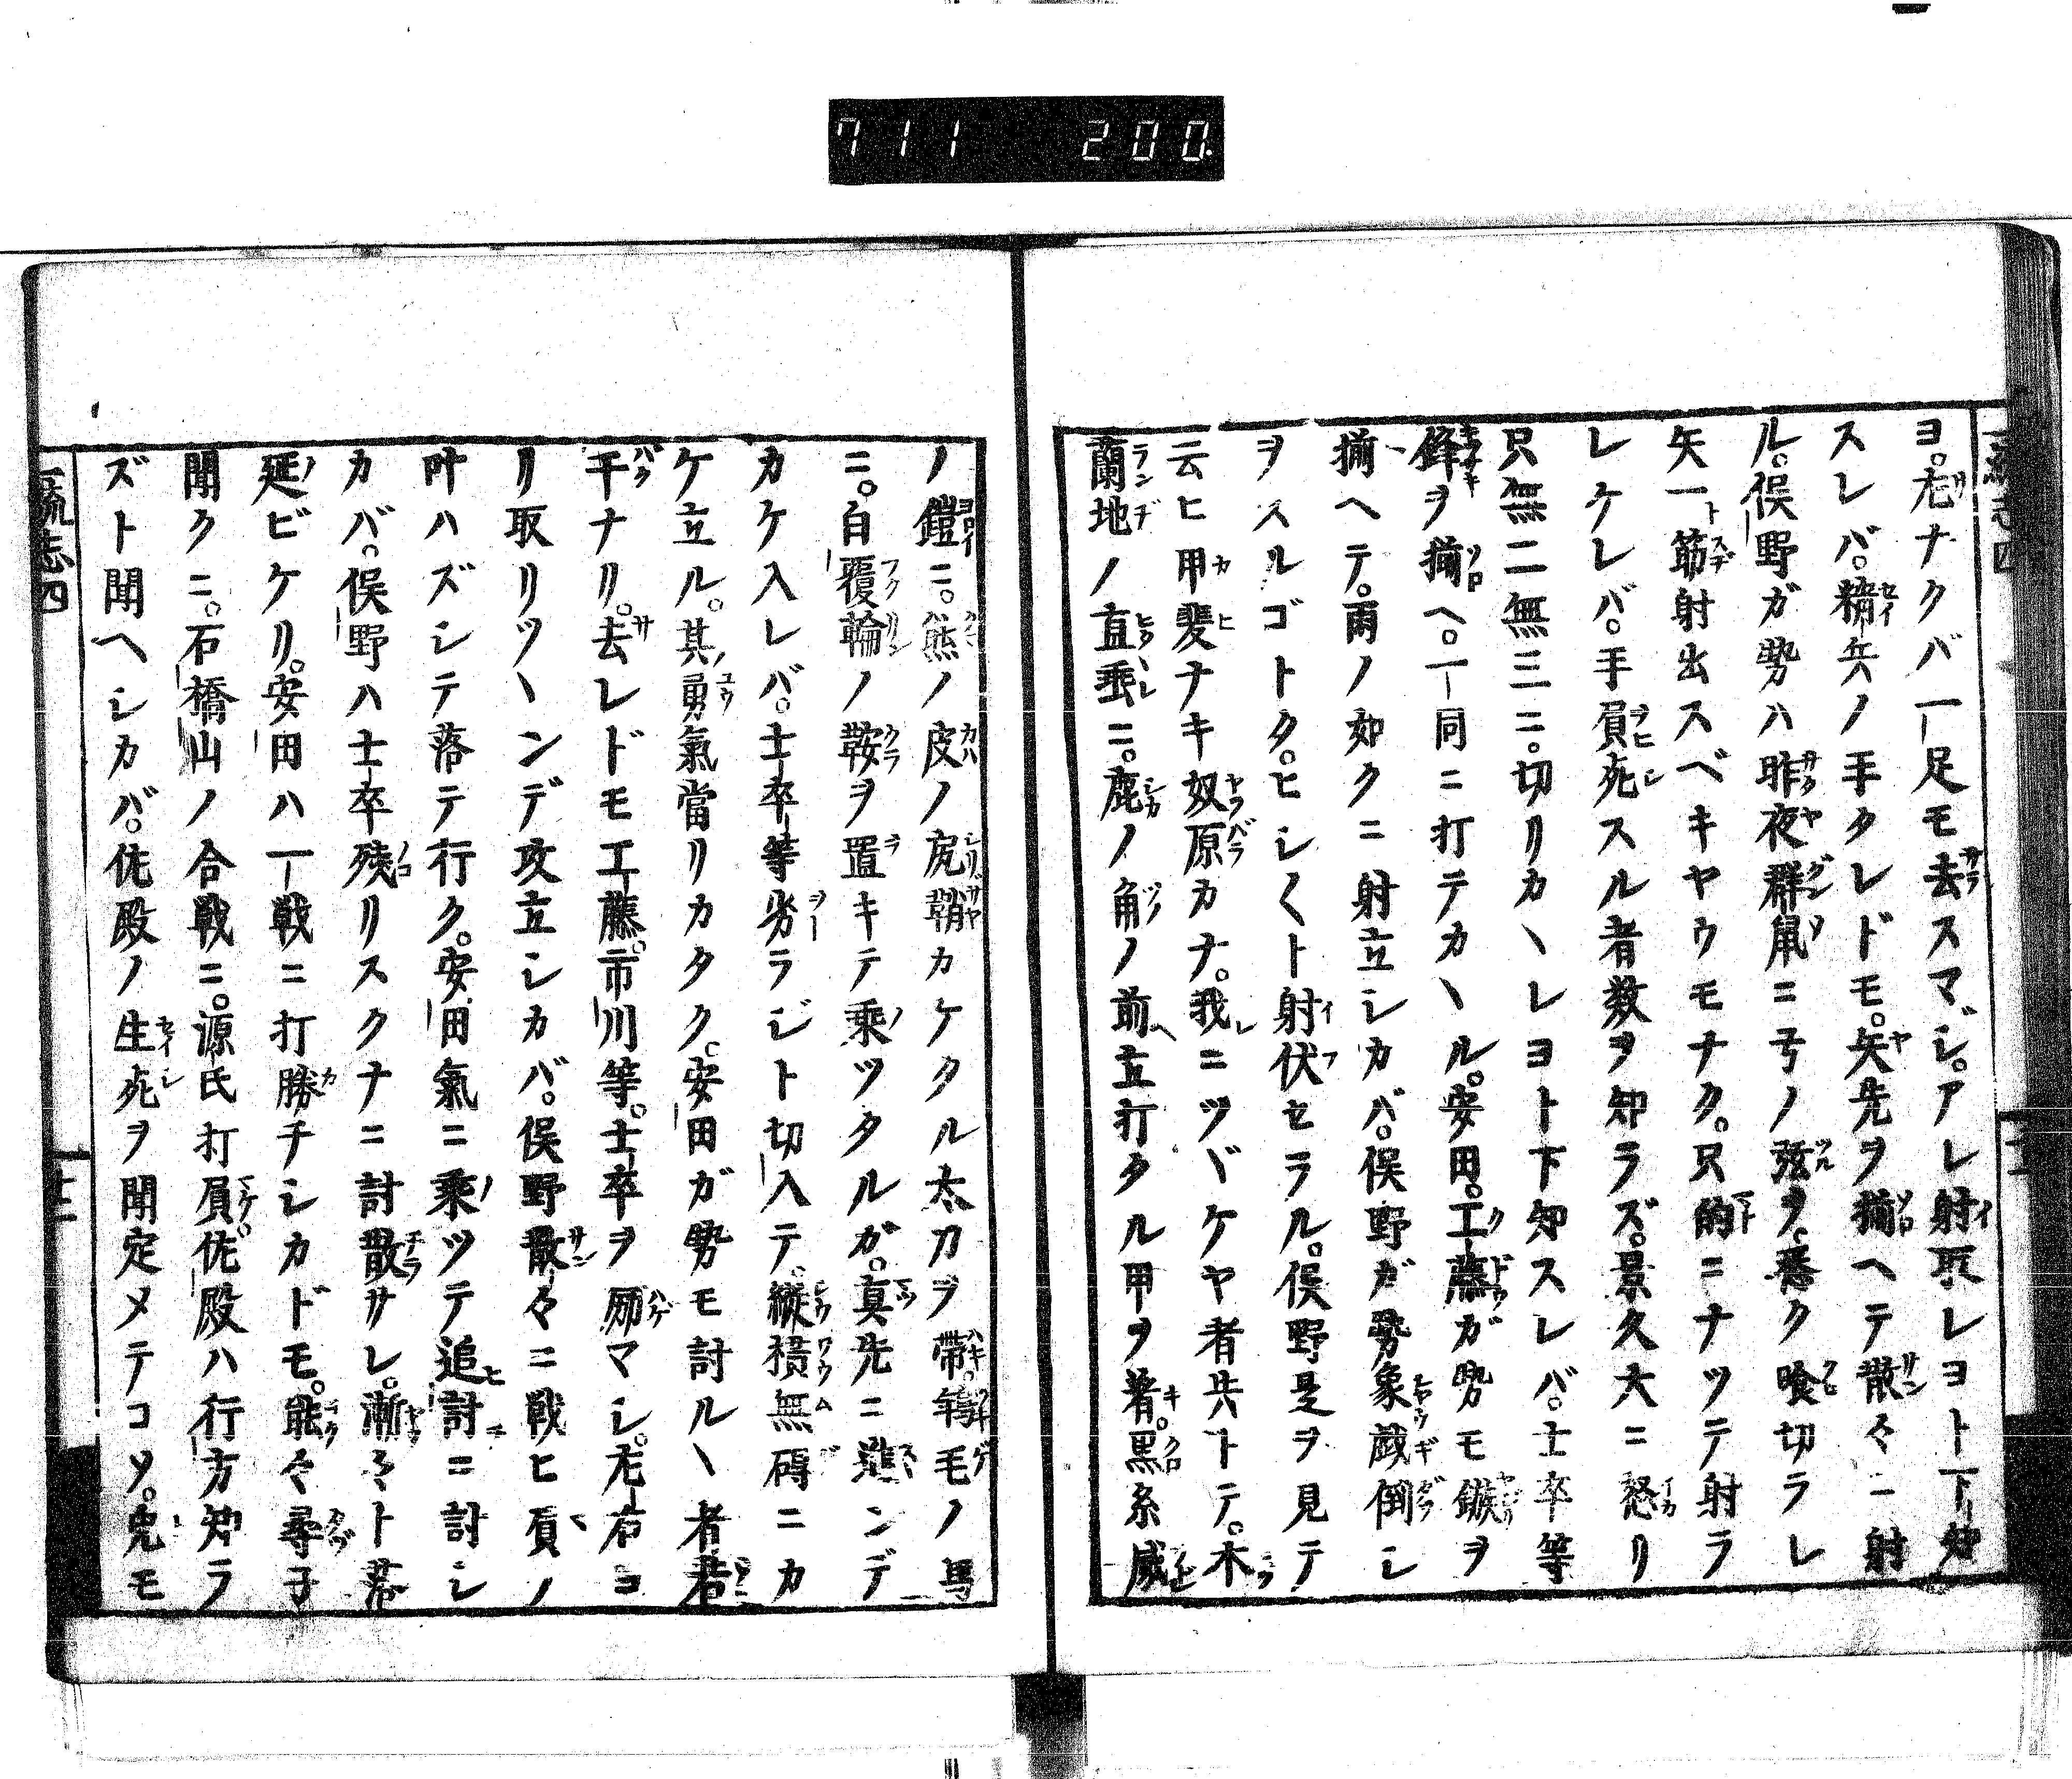 711 200.
ヨ。尤ナクバ一足モ去スマジ。アレ射取レヨト下知
スレバ。精兵ノ手タレドモ。矢先ヲ揃ヘテ散々ニ射
ル。俣野ガ勢ハ昨夜群鼠ニ弓ノ弦ヲ。悉ク喰切ラレ
矢一筋射出スベキヤウモナク。只的ニナツテ射ラ
レケレバ。手屓死スル者数ヲ知ラズ。景久大ニ怒リ
只無二無三ニ。切リカヽレヨト下知スレバ。士卒等
鋒ヲ揃ヘ。一同ニ打テカヽル。安田。工藤ガ勢モ鏃ヲ
揃ヘテ。雨ノ如クニ射立シカバ。俣野ガ勢象戯倒シ
ヲスルゴトク。ヒシ〱ト射伏セラル。俣野是ヲ見テ
云ヒ甲斐ナキ奴原カナ。我ニツヾケヤ者共トテ。木
蘭地ノ直垂ニ。鹿ノ角ノ前立打タル甲ヲ着。黒糸威
ノ鎧ニ。熊ノ皮ノ尻鞘カケタル太刀ヲ帯。鴾毛ノ馬
ニ。白覆輪ノ鞍ヲ置キテ乗ツタルガ。真先ニ進ンデ
カケ入レバ。士卒等劣ラジト切入テ。縦横無碍ニカ
ケ立ル。其勇氣當リカタク。安田ガ勢モ討ルヽ者若
干ナリ。去レドモ工藤。市川等。士卒ヲ励マシ。左右ヨ
リ取リツヽンデ攻立シカバ。俣野散々ニ戦ヒ屓ノ
叶ハズシテ落テ行ク。安田氣ニ乗ツテ追討ニ討シ
カバ。俣野ハ士卒残リスクナニ討散サレ。漸々ト落
延ビケリ。安田ハ一戦ニ打勝チシカドモ。能々尋子
聞クニ。石橋山ノ合戦ニ。源氏打屓佐殿ハ行方知ラ
ズト聞ヘシカバ。佐殿ノ生死ヲ聞定メテコソ。兎モ